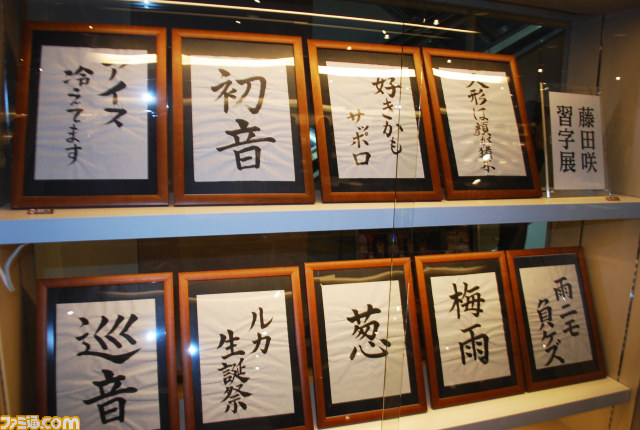 藤田咲
習字展
人形は
好きかも
サポロ
初音
アイス
冷えてます
雨ニモ
負ケズ
梅雨
葱
ルカ
生誕祭
巡音
ファミ通.com